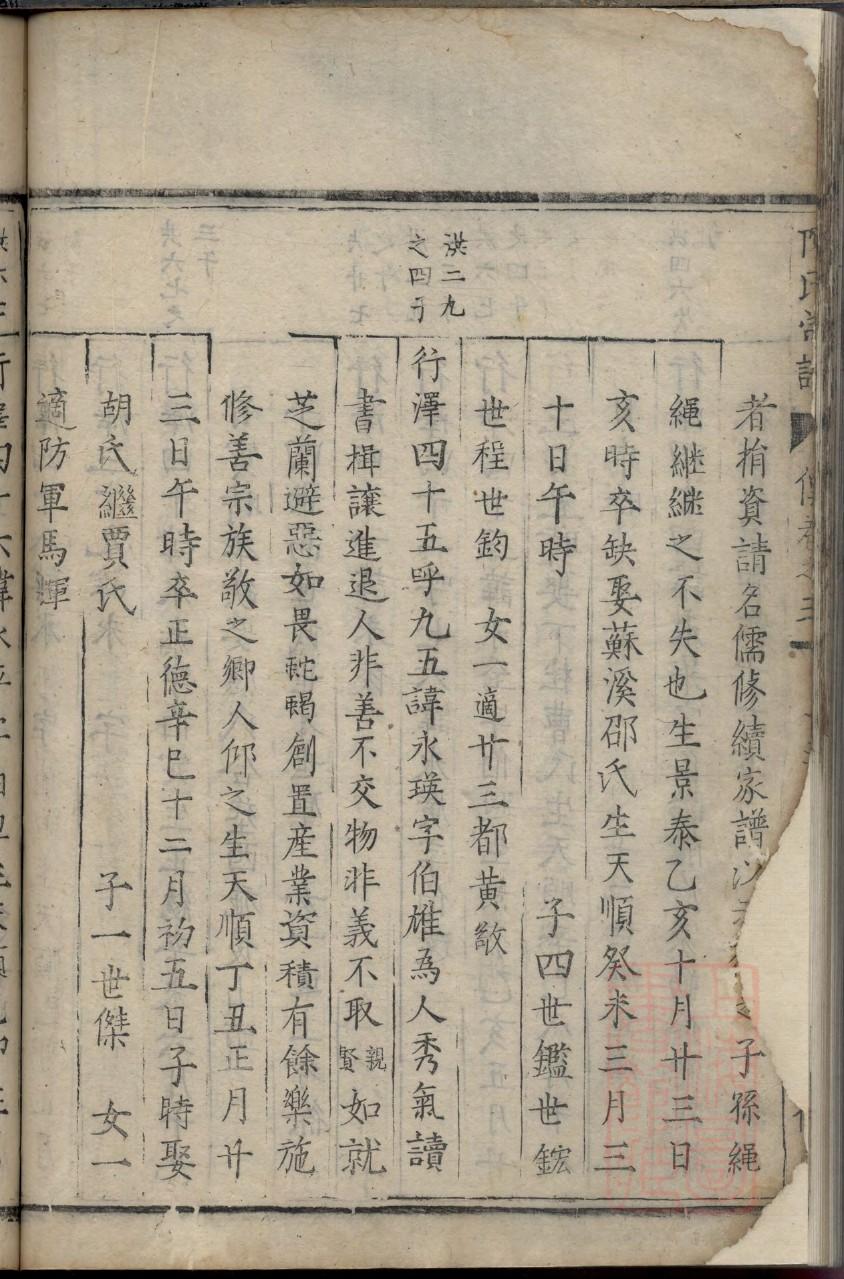 者捐資請名儒修續家譜以 子孫繩
繩継継之不失也生景泰乙亥十月廿三日
亥時卒缺娶蘇溪邵氏生天順癸未三月三
十日午時 子四世鑑世鋐
世程世鈞 女一適廿三都黃敬
洪二九
之四子
行澤四十五呼九五諱永瑛字伯雄為人秀氣讀
書揖讓進退人非善不交物非義不取親賢如就
芝蘭避惡如畏蛇蝎創置産業資積有餘樂施
修善宗族敬之鄉人仰之生天順丁丑正月廿
三日午時卒正德辛巳十二月初五日子時娶
胡氏繼賈氏 子一世傑 女一
適防軍馬輝